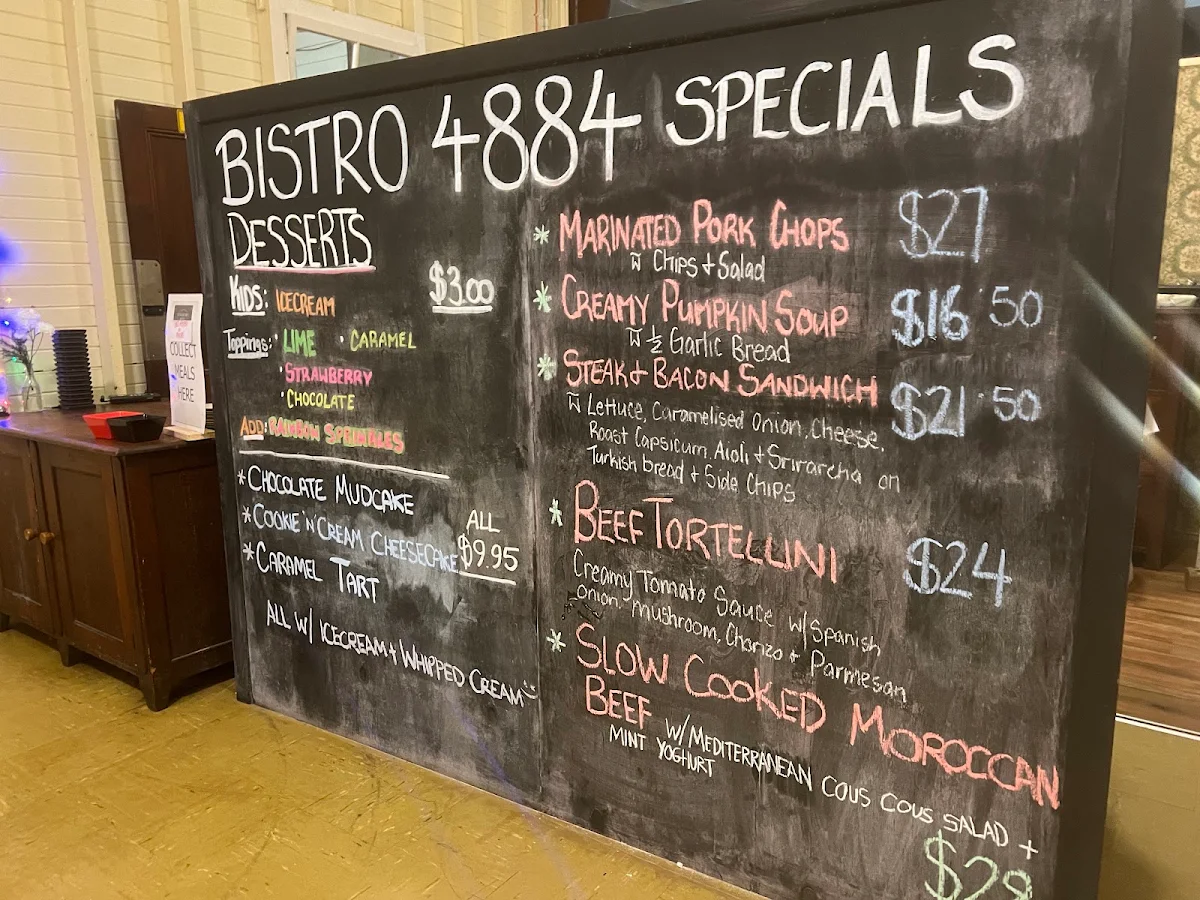 BISTRO 4884 SPECIALS
DESSERTS
KIDS: ICECREAM $3.00
Toppings: · LIME · CARAMEL
· STRAWBERRY
· CHOCOLATE
ADD: RAINBOW SPRINKLES
* CHOCOLATE MUDCAKE
* COOKIE 'N' CREAM CHEESECAKE
* CARAMEL TART
ALL
$9.95
ALL W/ ICECREAM + WHIPPED CREAM
* MARINATED PORK CHOPS $27
w Chips + Salad
* CREAMY PUMPKIN SOUP $16.50
w ½ Garlic Bread
* STEAK + BACON SANDWICH $21.50
w Lettuce, Caramelised Onion, Cheese,
Roast Capsicum, Aioli + Sriraracha on
Turkish bread + Side Chips
* BEEF TORTELLINI $24
Creamy Tomato Sauce w/ Spanish
Onion, Mushroom, Chorizo + Parmesan
* SLOW COOKED MOROCCAN
BEEF W/ MEDITERRANEAN COUS COUS SALAD +
MINT YOGHURT
COLLECT
MEALS
HERE